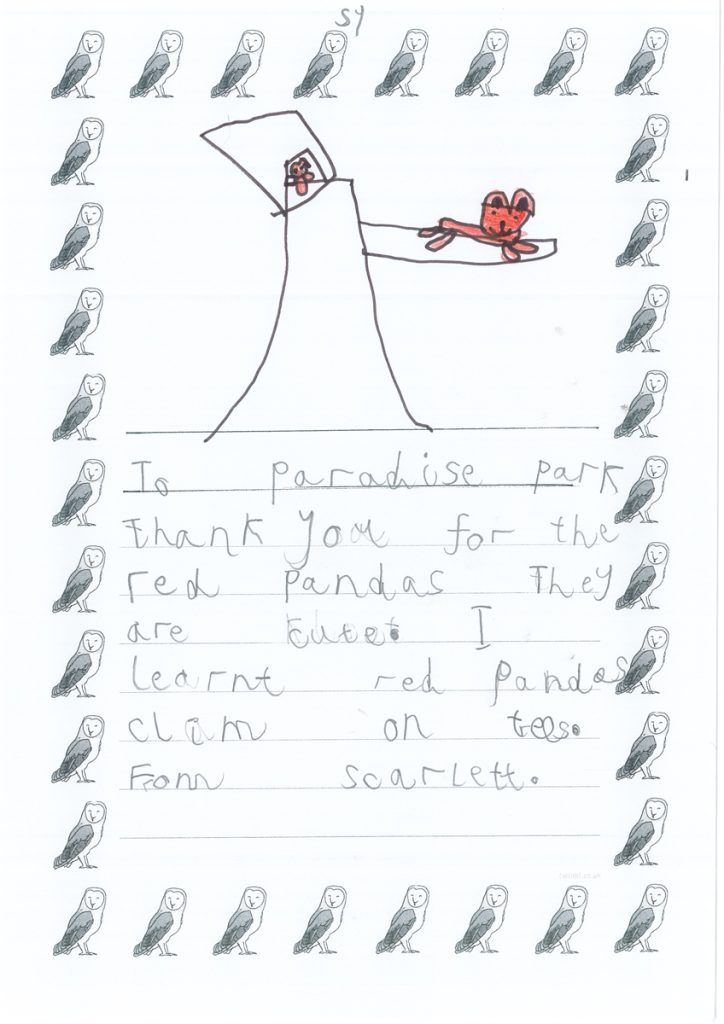 sy
To paradise park
thank you for the
red pandas They
are cute. I
learnt red pandas
claim on tees.
From scarlett.